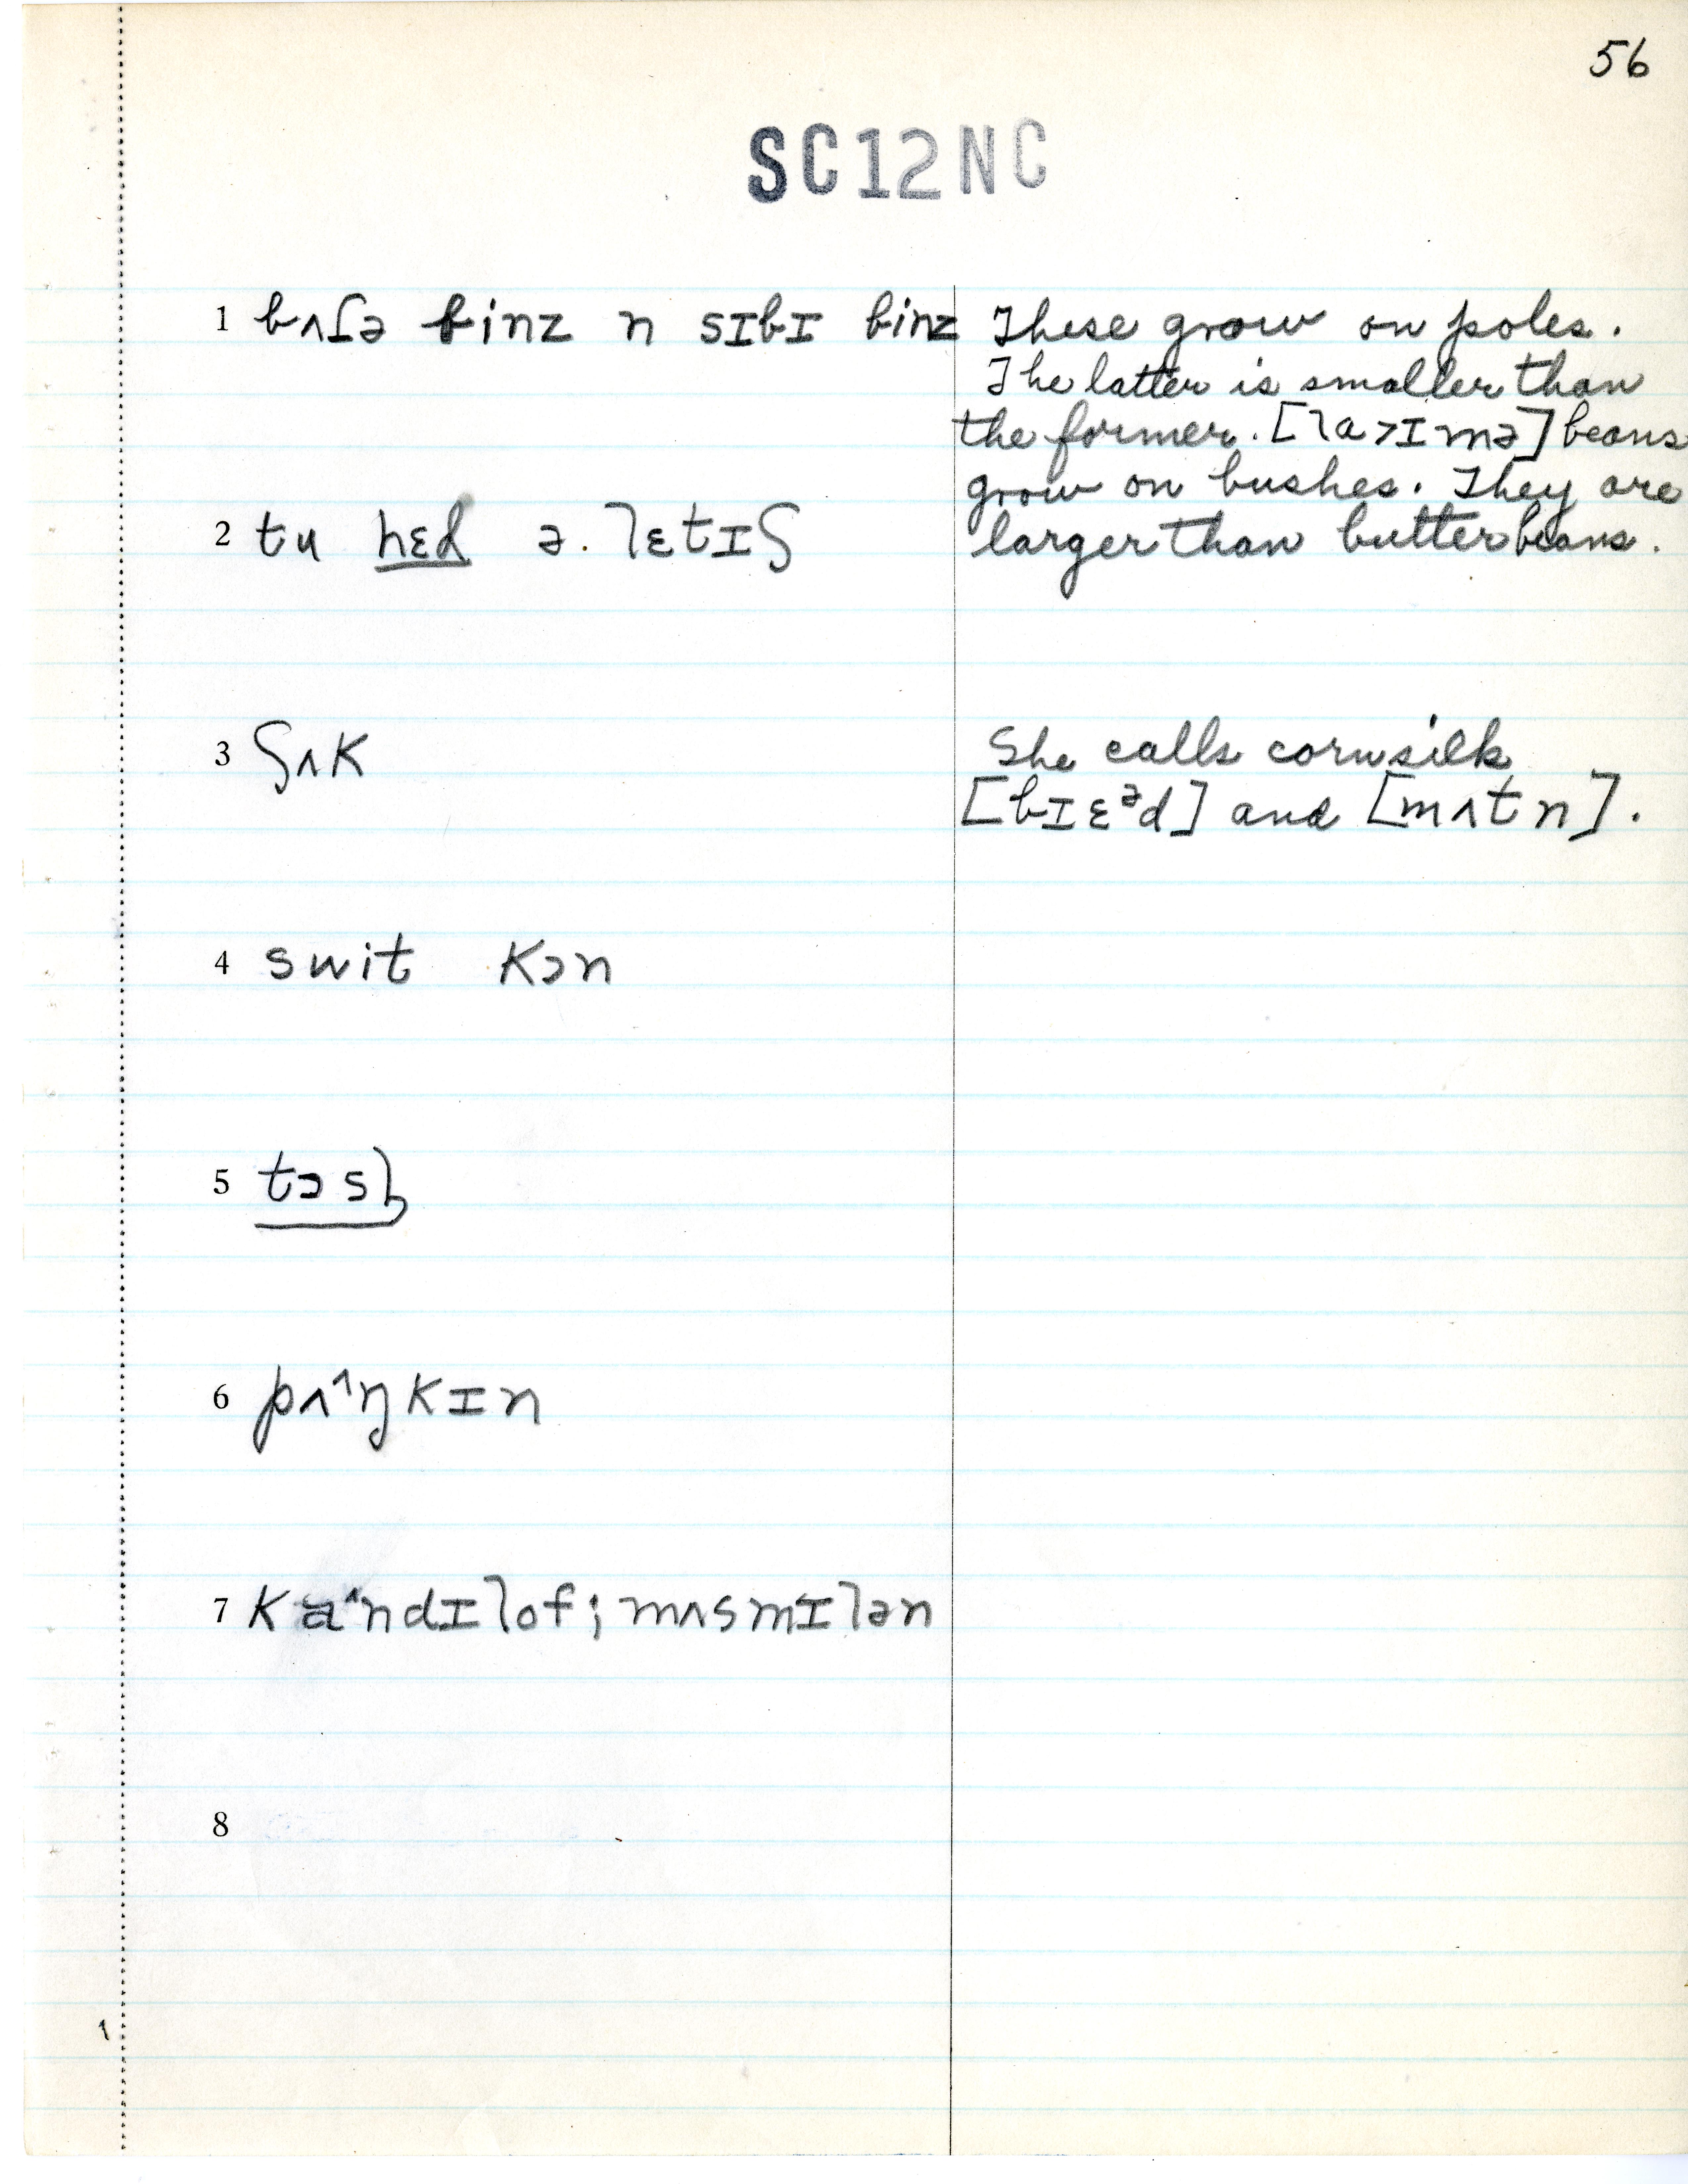 56
SC12NC
1 bʌɾə binz n sɪbɪ binz
These grow on poles.
The latter is smaller than
the former. [la>ɪmə] beans
grow on bushes. They are
larger than butterbeans.
2 tu hɛd ə. lɛtɪʃ
3 ʃʌk
She calls cornsilk
[bɪɛᵊd] and [mʌtn].
4 swit kɔn
5 tɔsl̩
6 pʌ^ŋkɪn
7 ka^ndɪlof; mʌsmɪlən
8